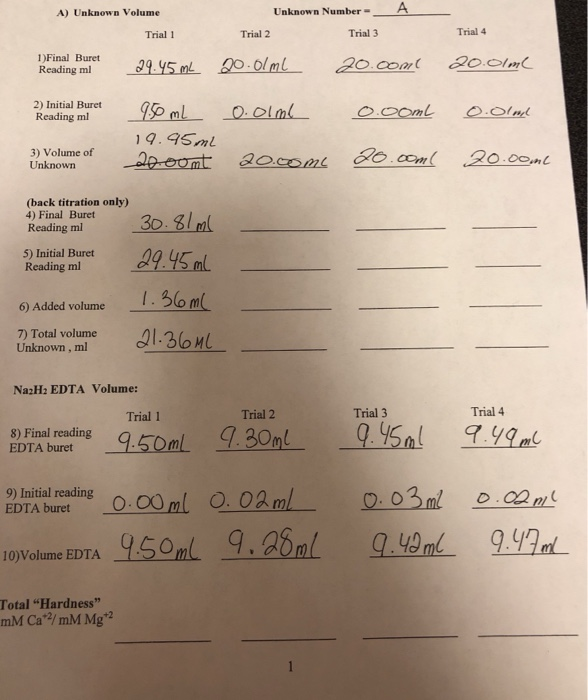 A) Unknown Volume Unknown Number = A
Trial 1 Trial 2 Trial 3 Trial 4
1)Final Buret
Reading ml 29.45 mL 20.01mL 20.00ml 20.01mL
2) Initial Buret
Reading ml 9.50 ml 0.01ml 0.00mL 0.01ml
19.95mL
3) Volume of
Unknown 20.00ml 20.00mL 20.00ml 20.00mL
(back titration only)
4) Final Buret
Reading ml 30.81ml
5) Initial Buret
Reading ml 29.45 ml
6) Added volume 1.36ml
7) Total volume
Unknown , ml 21.36ML
Na₂H₂ EDTA Volume:
Trial 1 Trial 2 Trial 3 Trial 4
8) Final reading
EDTA buret 9.50ml 9.30ml 9.45ml 9.49mL
9) Initial reading
EDTA buret 0.00ml 0.02ml 0.03ml 0.02ml
10)Volume EDTA 9.50ml 9.28ml 9.42mL 9.47ml
Total “Hardness”
mM Ca⁺²/ mM Mg⁺²
1